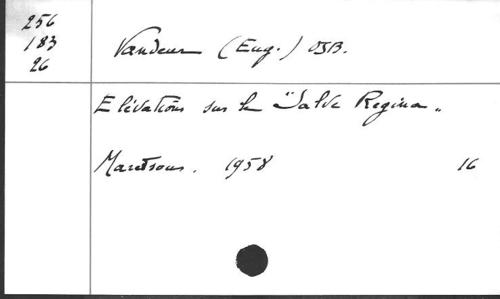 256
183
26
Vandeur (Eug.) OSB.
Elévations sur le "Salve Regina"
Maredsous. 1958 16